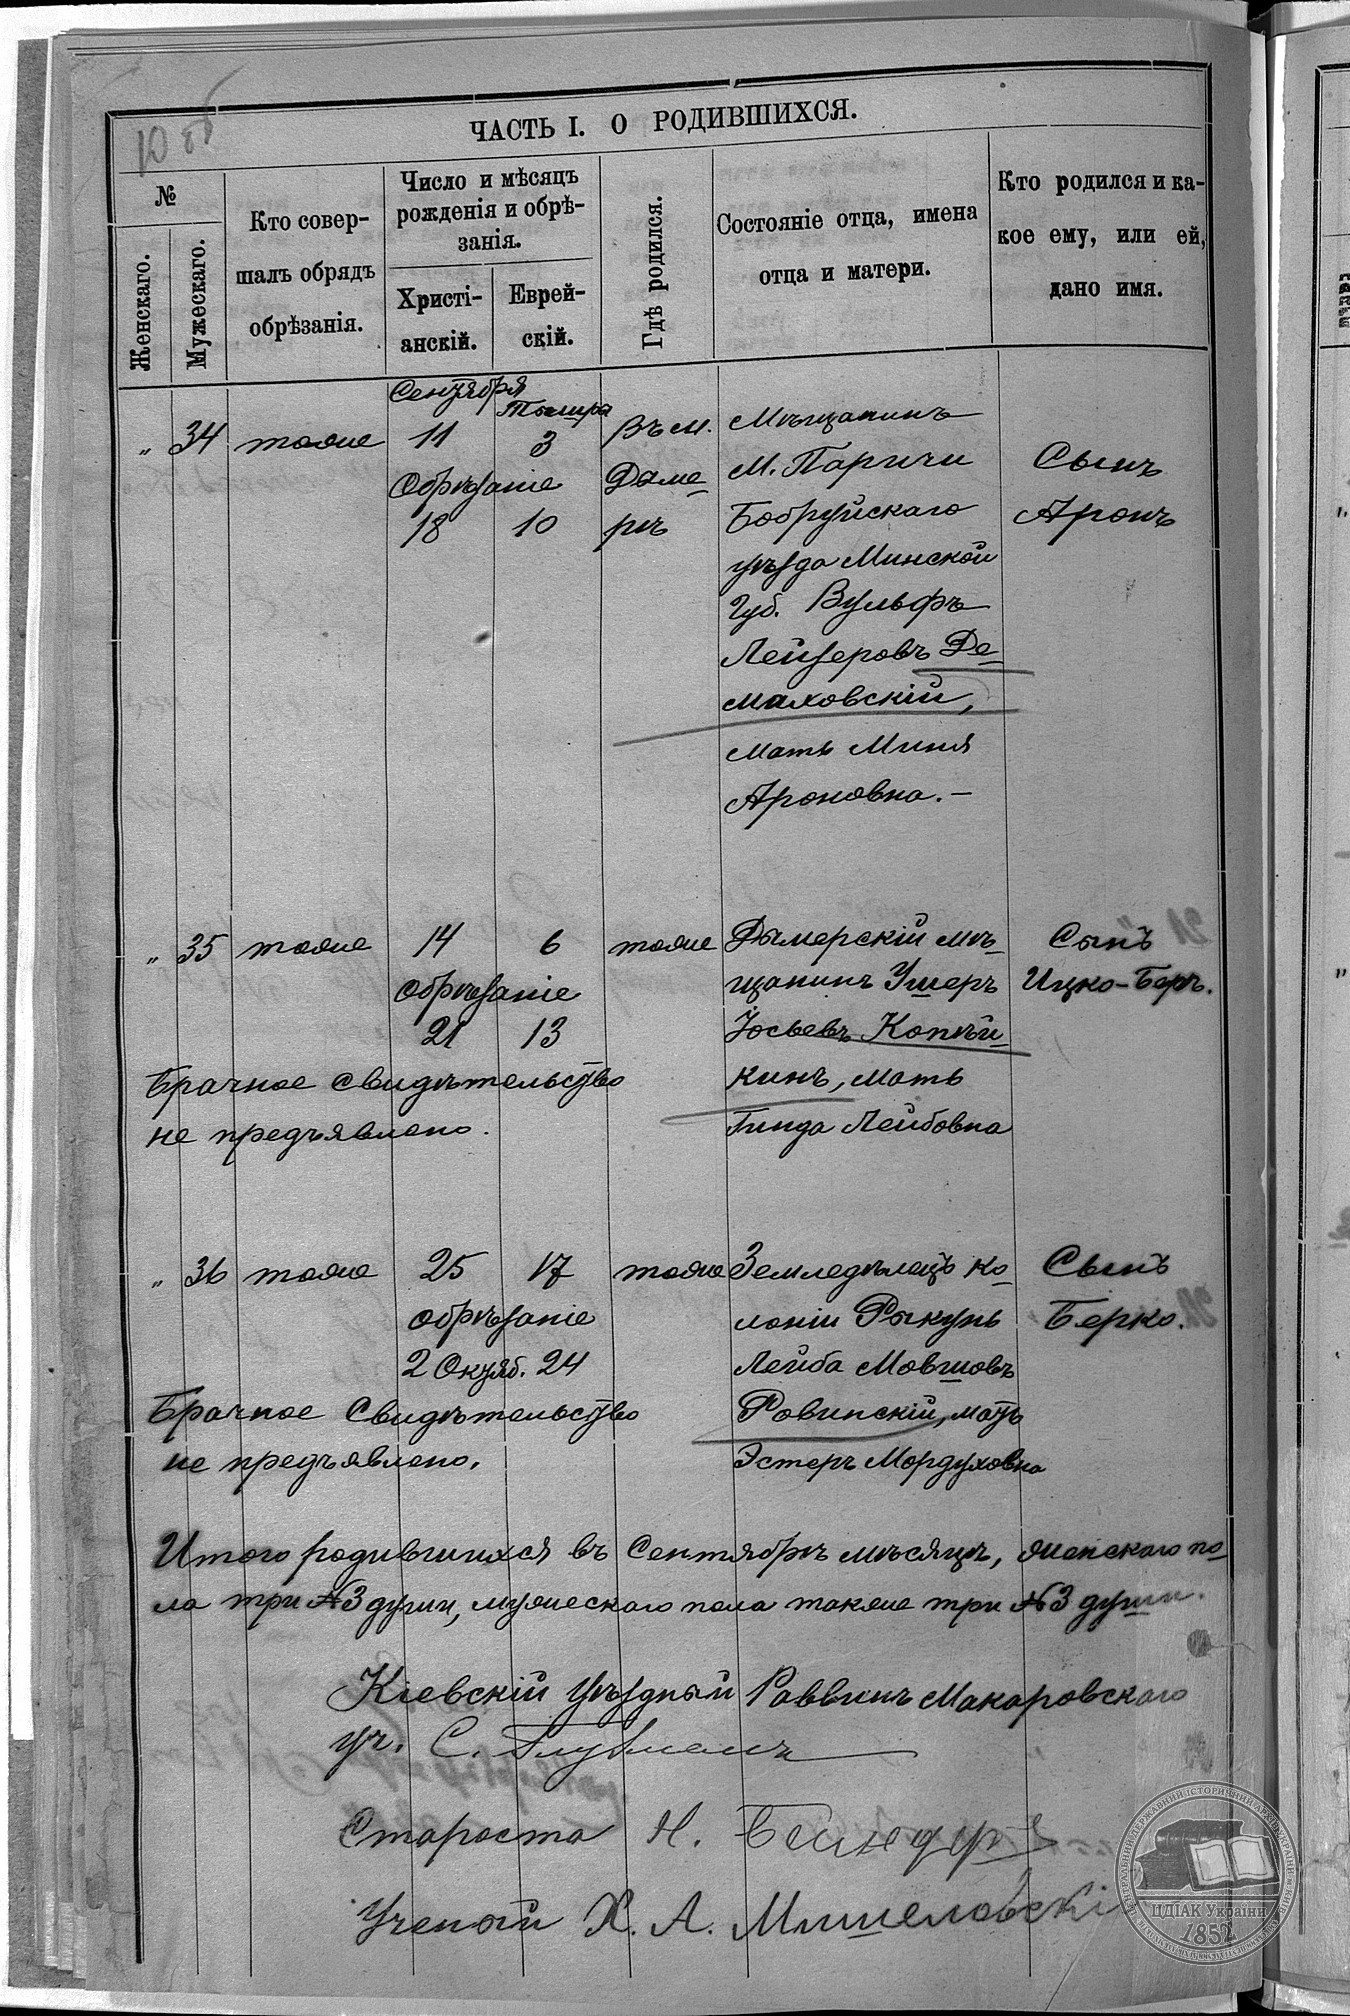 ЧАСТЬ I. О РОДИВШИХСЯ.
№
Женскаго.
Мужескаго.
Кто совер-
шалъ обрядъ
обрѣзанія.
Число и мѣсяцъ
рожденія и обрѣ-
занія.
Христі-
анскій.
Еврей-
скій.
Гдѣ родился.
Состояніе отца, имена
отца и матери.
Кто родился и ка-
кое ему, или ей,
дано имя.
Сентября
Тышра
„ 34 тоже 11 3 Въ м. Мѣщанинъ
Обрѣзаніе Дыме- М. Паричи Сынъ
18 10 рѣ Бобруйскаго Аронъ
уѣзда Минской
Губ. Вульфъ
Лейзеровъ Де-
маховскій,
мать Миня
Ароновна.—
„ 35 тоже 14 6 тоже Дымерскій мѣ- Сынъ
обрѣзаніе щанинъ Ушеръ Ицко-Беръ.
21 13 Іосьевъ Копѣй-
Брачное свидѣтельство кинъ, мать
не предъявлено. Гинда Лейбовна
„ 36 тоже 25 17 тоже Земледѣлецъ ко- Сынъ
обрѣзаніе лоніи Рыкунь Берко.
2 Октяб. 24 Лейба Мовшовъ
Брачное Свидѣтельство Ровинскій, мать
не предъявлено. Эстеръ Мордуховна
Итого родившихся въ Сентябрѣ мѣсяцѣ, женскаго по-
ла три №3 души, мужескаго пола также три №3 души.
Кіевскій Уѣздный Раввинъ Макаровскаго
уч. С.
Староста Н. Бейндеръ
Ученый Х. А. Мишеловскі
ЦДІАК України
1852